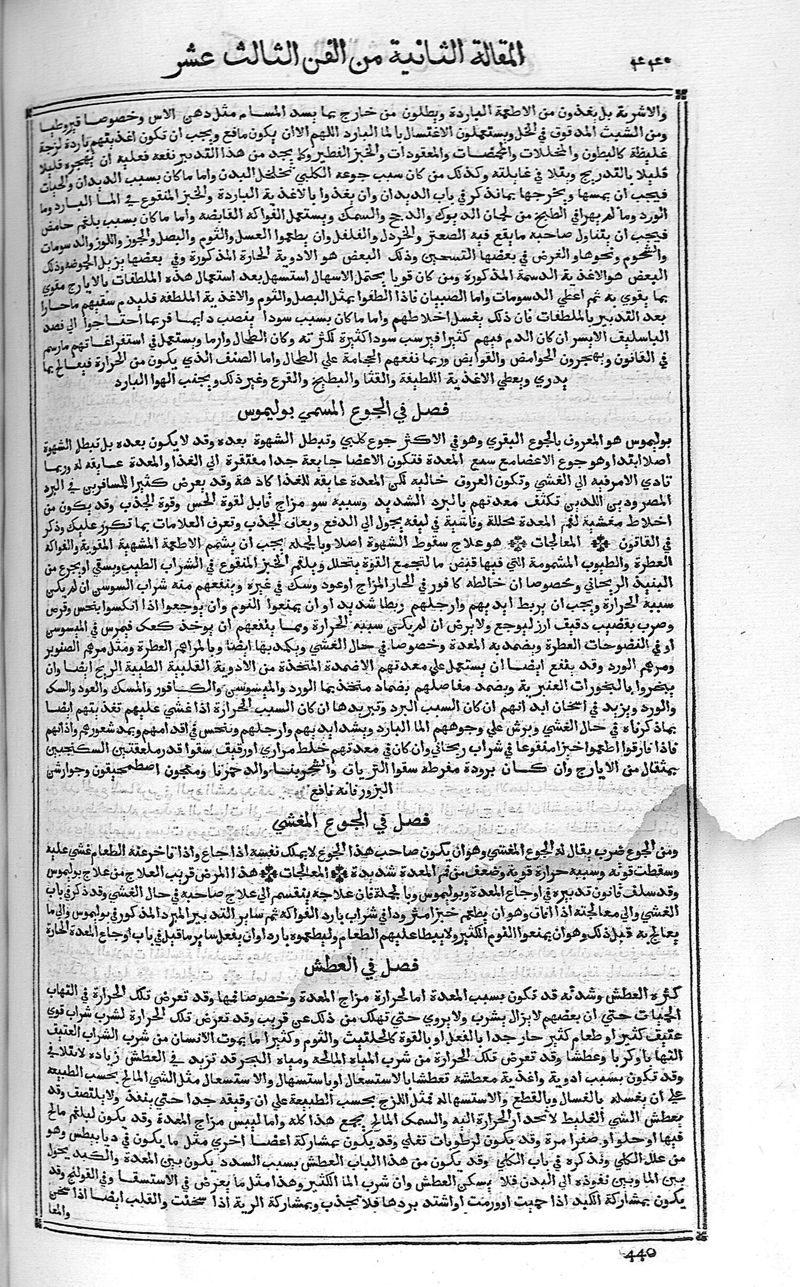 ٤٤٠ المقالة الثانية من الفن الثالث عشر
والاشربة بل يغذون من الاطعمة الباردة ويطلون من خارج بما يسد المسام مثل دهن الاس وخصوصا قيروطيا
ومن الشبث المدقوق في الخل ويستعملون الاغتسال بالما البارد اللهم الا ان يكون مانع ويجب ان تكون اغذيتهم باردة لزجة
غليظة كالبطون والمخللات والمحمضات والمعقودات والخبز الفطير وكما يجد من هذا التدبير نفعه فعليه ان يهجره قليلا
قليلا بالتدريج وبقلا في غايلته وكذلك من كان سبب جوعه الكلبي تخلخل البدن واما ما كان بسبب الديدان والحيات
فيجب ان يمسها ويخرجها بما نذكر في باب الديدان وان يغذوا بالاغذية الباردة والخبز المنقوع في الما البارد وما
الورد وما لم يهرا في الطبخ من لحمان الديوك والدجج والسمك ويستعمل الفواكه القابضة واما ما كان بسبب بلغم حامض
فيجب ان يتناول صاحبه ما يقع فيه الصعتر والخردل والفلفل وان يطعموا العسل والثوم والبصل والجوز واللوز والدسومات
والشحوم ونحوها والغرض في بعضها التسخين وذلك البعض هو الادوية الحارة المذكورة وفي بعضها يزيل الحموضة وذلك
البعض هو الاغذية الدسمة المذكورة ومن كان قويا يحتمل الاسهال استسهل بعد استعمال هذه الملطفات بالايارج مقوي
بما يقوي به ثم اعطي الدسومات واما الصبيان فاذا الطفوا بمثل البصل والثوم والاغذية الملطفة فليدم سقيهم ما حارا
بعد التدبير بالملطفات فان ذلك يغسل اخلاطهم واما ما كان بسبب سودا ينصب دايما فربما احتاجوا الي فصد
الباسليق الايسر ان كان الدم فيهم كثيرا فيرسب سودا كثيرة لكثرته وكان الطحال وارما ويستعمل في استفراغاتهم ما رسم
في القانون ويهجرون الحوامض والقوابض وربما نفعهم الحجامة علي الطحال واما الصنف الذي يكون من الحرارة فيعالج بما
يدري ويعطي الاغذية اللطيفة والقثا والبطيخ والقرع وغير ذلك ويجنب الهوا البارد
فصل في الجوع المسمي بوليموس
بوليموس هو المعروف بالجوع البقري وهو في الاكثر جوع كلبي وتبطل الشهوة بعده وقد لا يكون بعده بل تبطل الشهوة
اصلا ابتدا وهو جوع الاعضا مع شبع المعدة فتكون الاعضا جايعة جدا مفتقرة الي الغذا والمعدة عايفة له وربما
تادي الامر فيه الي الغشي وتكون العروق خالية لكن المعدة عايفة للغذا كارهة وقد يعرض كثيرا للمسافرين في البرد
المصرودين اللدين تكثف معدتهم بالبرد الشديد وسببه سو مزاج قابل لقوة الحس وقوة الجذب وقد يكون من
اخلاط مغشية لفم المعدة محللة وفاشية في ليفه يحول الي الدفع ويعاف الجذب وتعرف العلامات بما تكرر عليك وذكر
في القانون المعالجات هو علاج سقوط الشهوة اصلا وبالجملة يجب ان يشمم الاطعمة المشهية المقوية والفواكه
العطرة والطيوب المشمومة التي فيها قبض ما لتجمع القوة بتحلل ويلقم الخبز المنقوع في الشراب الطيب ويسقي او يجرع من
النبيذ الريحاني وخصوصا ان خالطه كافور في الحار المزاج او عود وسك في غيره وينفعهم منه شراب السوسن ان لم يكن
سببه الحرارة ويجب ان يربط ايديهم وارجلهم ربطا شديدا وان يمنعوا النوم وان يوجعوا اذا انكسوا بنخس وقرص
وضرب بقضيب دقيق ارز ليوجع ولا يرض ان لم يكن سببه الحرارة ومما ينفعهم ان يوخذ كعك فيمرس في الميسوسن
او في النضوحات العطرة ويضمد به المعدة وخصوصا في حال الغشي ويكمد بها ايضا وبالمراهم العطرة ومثل مرهم الصنوبر
ومرهم الورد وقد ينفع ايضا ان يستعمل علي معدتهم الاضمدة المتخذة من الادوية القلبية الطيبة الريح ايضا وان
يبخروا بالبخورات العنبرية ويضمد مفاصلهم بضماد متخذ بما الورد والميسوسن والكافور والمسك والعود والسك
والورد ويزيد في اسخان ابدانهم ان كان السبب البرد وتبريدها ان كان السبب الحرارة اذا غشي عليهم تغذيتهم ايضا
بما ذكرناه في حال الغشي ويرش علي وجوههم الما البارد ويشد ايديهم وارجلهم وينخس في اقدامهم ويمد شعورهم واذانهم
فاذا فارقوا اطعموا خبزا منقوعا في شراب ريحاني وان كان في معدتهم خلط مراري او رقيق سقوا قدر ملعقتين السكنجبين
بمثقال من الايارج وان كان برودة مفرطة سقوا الترياق والشجزينا والدحمرثا ومعجون اصطمحيقون وجوارشن
البزور فانه نافع
فصل في الجوع المغشي
ومن الجوع ضرب يقال له الجوع المغشي وهو ان يكون صاحب هذا الجوع لا يملك نفسه اذا جاع واذا تاخر عنه الطعام غشي عليه
وسقطت قوته وسببه حرارة قوية وضعف من فم المعدة شديدة المعالجات هذا المرض قريب العلاج من علاج بوليموس
وقد سلف قانون تدبيره في اوجاع المعدة وبوليموس وبالجملة فان علاجه ينقسم الي علاج صاحبه في حال الغشي وقد ذكر في باب
الغشي والي معالجته اذا افاق وهو ان يطعم خبز امثرودا في شراب بارد الفواكه ثم ساير التدبير المبرد المذكور في بوليموس والي ما
يعالج به قبل ذلك وهو ان يمنعوا النوم الكثير ولا يبطا عليهم الطعام وليطعموه باردا وان يفعل ساير ما قيل في باب اوجاع المعدة الحارة
فصل في العطش
كثره العطش وشدته قد تكون بسبب المعدة اما لحرارة مزاج المعدة وخصوصا فمها وقد تعرض تلك الحرارة في التهاب
الحميات حتي ان بعضهم لا يزال يشرب ولا يروي حتي تهلك من ذلك عن قريب وقد تعرض تلك الحرارة لشرب شراب قوي
عتيق كثير او طعام كثير حار جدا بالفعل او بالقوة كالحلتيت والثوم وكثيرا ما يموت الانسان من شرب الشراب العتيق
التهابا وكربا وعطشا وقد تعرض تلك الحرارة من شرب المياه المالحة ومياه البحر قد تزيد في العطش زيادة لا تتلافي
وقد تكون بسبب ادوية واغذية معطشة تعطشها بالاستعمال او باستسهال والاستسعال مثل الشي المالح بحسب الطبيعة
علي ان يغسله بالغسال وبالقطع والاستسهاله ممثل اللزج بحسب الطبيعة علي ان رقيقه جدا حتي ينفذ ولا يلتصق وقد
يعطش الشي الغليظ لانحدار الحرارة اليه والسمك المالح يجمع هذا كله واما ليبس مزاج المعدة وقد يكون لبلغم مالح
فيها او حلو او صفرا مرة وقد يكون لرطوبات تغلي وقد يكون بمشاركة اعضا اخري مثل ما يكون في ديابيطس وهو
من علل الكلي ونذكره في باب الكلي وقد يكون من هذا الباب العطش بسبب السدد يكون بين المعدة والكبد يحول
بين الما وبين نفوذه الي البدن فلا يسكن العطش وان شرب الما الكثير وهذا مثل ما يعرض في الاستسقا وفي القولنج وقد
يكون بمشاركة الكبد اذا حميت او ورمت او اشتد بردها فلا تجذب وبمشاركة الرية اذا سخنت والقلب ايضا اذا سخن
والمعا
440